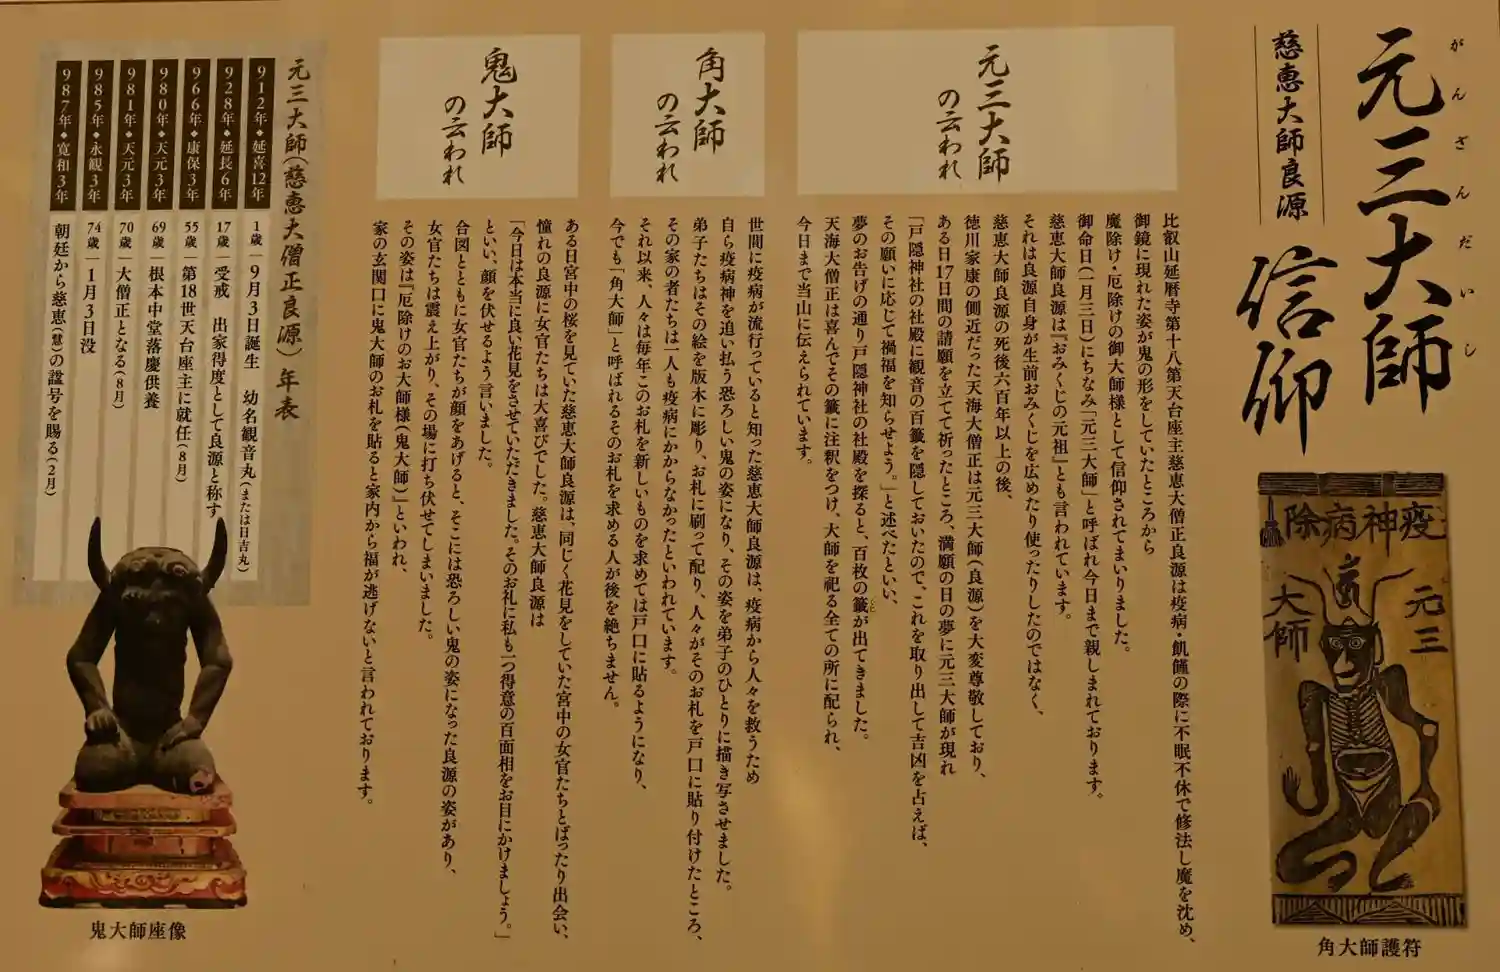 元三大師
がんざんだいし
信仰
慈恵大師良源
疫神病除
元三
大師
角大師護符
元三大師
の云われ
比叡山延暦寺第十八第天台座主慈恵大僧正良源は疫病・飢饉の際に不眠不休で修法し魔を沈め、
御鏡に現れた姿が鬼の形をしていたところから
魔除け・厄除けの御大師様として信仰されてまいりました。
御命日(一月三日)にちなみ「元三大師」と呼ばれ今日まで親しまれております。
慈恵大師良源は『おみくじの元祖』とも言われています。
それは良源自身が生前おみくじを広めたり使ったりしたのではなく、
慈恵大師良源の死後六百年以上の後、
徳川家康の側近だった天海大僧正は元三大師(良源)を大変尊敬しており、
ある日17日間の請願を立てて祈ったところ、満願の日の夢に元三大師が現れ
「戸隠神社の社殿に観音の百籤を隠しておいたので、これを取り出して吉凶を占えば、
その願いに応じて禍福を知らせよう。」と述べたといい、
夢のお告げの通り戸隠神社の社殿を探ると、百枚の籤が出てきました。
天海大僧正は喜んでその籤に注釈をつけ、大師を祀る全ての所に配られ、
今日まで当山に伝えられています。
角大師
の云われ
世間に疫病が流行っていると知った慈恵大師良源は、疫病から人々を救うため
自ら疫病神を追い払う恐ろしい鬼の姿になり、その姿を弟子のひとりに描き写させました。
弟子たちはその絵を版木に彫り、お札に刷って配り、人々がそのお札を戸口に貼り付けたところ、
その家の者たちは一人も疫病にかからなかったといわれています。
それ以来、人々は毎年このお札を新しいものを求めては戸口に貼るようになり、
今でも「角大師」と呼ばれるそのお札を求める人が後を絶ちません。
鬼大師
の云われ
ある日宮中の桜を見ていた慈恵大師良源は、同じく花見をしていた宮中の女官たちとばったり出会い、
憧れの良源に女官たちは大喜びでした。慈恵大師良源は
「今日は本当に良い花見をさせていただきました。そのお礼に私も一つ得意の百面相をお目にかけましょう。」
といい、顔を伏せるよう言いました。
合図とともに女官たちが顔をあげると、そこには恐ろしい鬼の姿になった良源の姿があり、
女官たちは震え上がり、その場に打ち伏せてしまいました。
その姿は『厄除けのお大師様(鬼大師)』といわれ、
家の玄関口に鬼大師のお札を貼ると家内から福が逃げないと言われております。
元三大師(慈恵大僧正良源)年表
912年◆延喜12年 1歳 9月3日誕生 幼名観音丸(または日吉丸)
928年◆延長6年 17歳 受戒 出家得度として良源と称す
966年◆康保3年 55歳 第18世天台座主に就任(8月)
980年◆天元3年 69歳 根本中堂落慶供養
981年◆天元3年 70歳 大僧正となる(8月)
985年◆永観3年 74歳 1月3日没
987年◆寛和3年 朝廷から慈恵(慧)の諡号を賜る(2月)
鬼大師座像